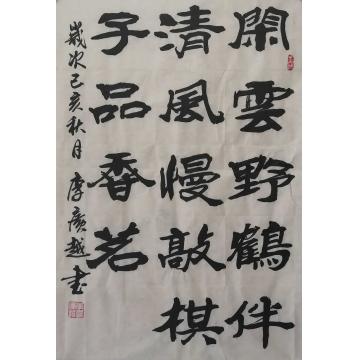 閑雲野鶴伴
清風慢敲棋
子品香茗
歲次己亥秋月李广越书